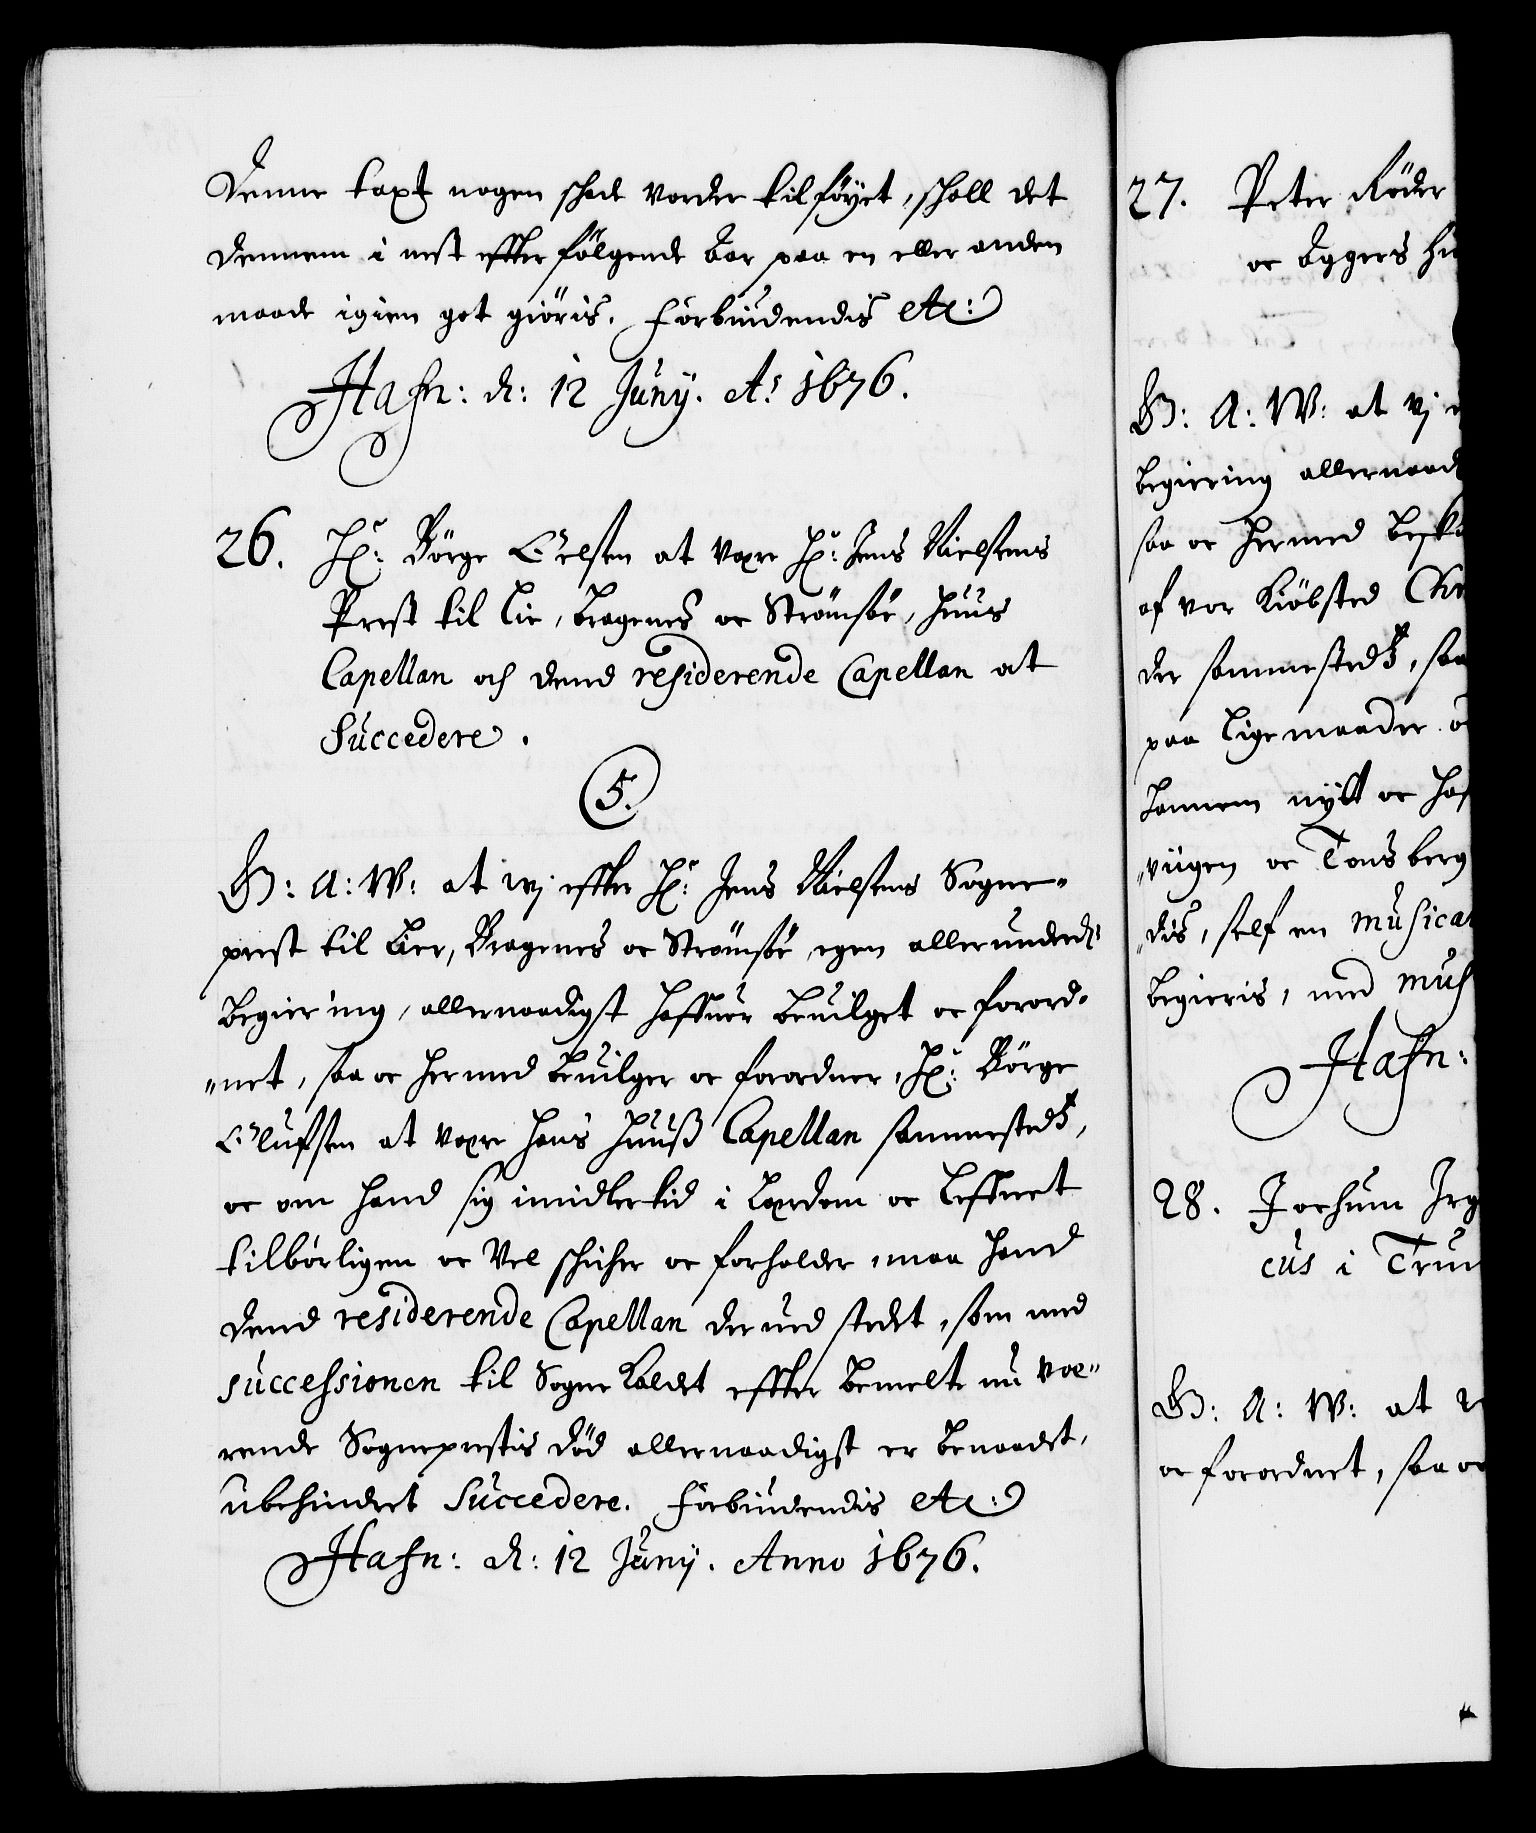 Denne taxt nogen schade vorder tilføyet, schall det
dennem i nest effter følgende Aar paa en eller anden
maade igien got giøris. Forbiudendis etc:
Hafn: d: 12 Juny. Ao 1676.
26. Hr: Børge Olsen at være Hr: Jens Nielsens
Prest til Lie, Bragenes oc Strømsøe, Huus
Capellan och dend residerende Capellan at
Succedere.
5.
G: A: W: at wj effter Hr: Jens Nielsens Sogne-
prest til Lier, Bragenes oc Strømsøe, egen allerunderd:
begiering, allernaadigst haffuer beuilget oc forord-
net, saa oc hermed beuilger oc forordner, Hr: Børge
Olufsen at være hans Huuß Capellan sammesteds,
oc om hand sig imidlertid i Lærdom oc Leffnet
tilbørligen oc Vel schicher oc forholder, maa hand
dend residerende Capellan der ved stedet, som med
successionen til Sogne Kaldet effter bemelte nu væ-
rende Sogneprestis død allernaadigst er benaadet,
ubehindret Succedere. Forbiudendis etc:
Hafn: d: 12 Juny. Anno 1676.
27. Peter Röder
oc Byggers
G: A: W: at vj
begiering allernaad
saa oc hermed besk
af vor Kiøbsted Chr
der sammesteds, saa
paa lige maader
hannem nytt oc haf
viigen oc Tonsberg
dis, self en musica
begieris, med mus
Hafn:
28. Jochum Jrg
cus i Trun
G: A: W: at
oc forordnet, saa oc